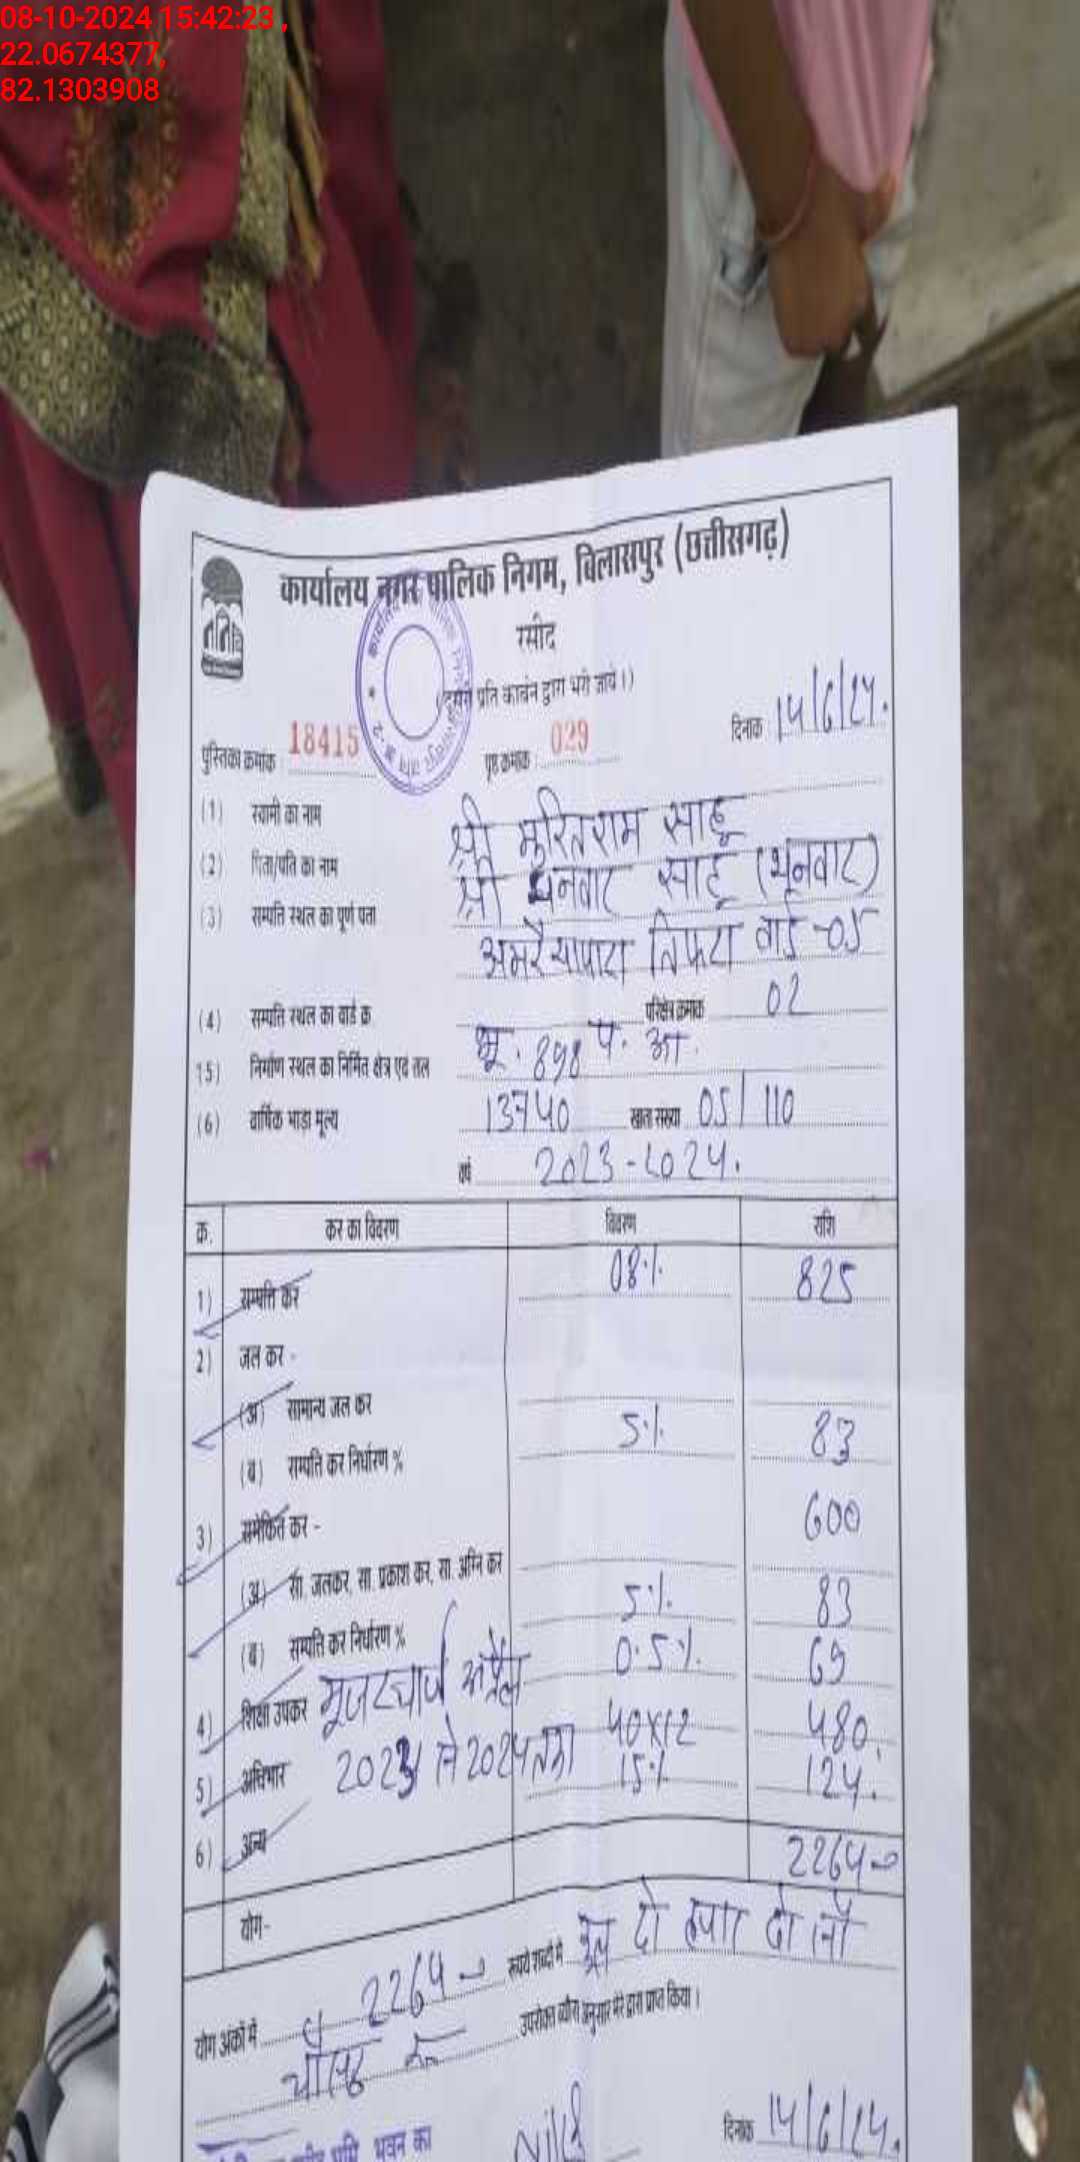 08-10-2024 15:42:23 ,
22.0674377,
82.1303908
कार्यालय नगर पालिक निगम, बिलासपुर (छत्तीसगढ़)
रसीद
(दूसरी प्रति कार्बन द्वारा भरी जावे।)
पुस्तिका क्रमांक 18415 पृष्ठ क्रमांक : 029 दिनांक 14/6/24.
(1) स्वामी का नाम श्री मुरितराम साहू
(2) पिता/पति का नाम श्री धनवार साहू
(3) सम्पति स्थल का पूर्ण पता अमरैयापारा तिफरा वार्ड -05
(4) सम्पति स्थल का वार्ड क्र परिक्षेत्र क्रमांक 02
(5) निर्माण स्थल का निर्मित क्षेत्र एवं तल भू. 898 प. आ.
(6) वार्षिक भाड़ा मूल्य 13740 खाता संख्या 05/110
वर्ष 2023-2024.
क्र. कर का विवरण विवरण राशि
1) सम्पत्ति कर 08% 825
2) जल कर -
(अ) सामान्य जल कर
(ब) सम्पति कर निर्धारण % 5% 83
3) समेकित कर - 600
(अ) सा. जलकर, सा. प्रकाश कर, सा. अग्नि कर
(ब) सम्पति कर निर्धारण % 5% 83
4) शिक्षा उपकर 0.5% 69
यूजरचार्ज अप्रैल
5) अधिभार 2023 से 2024 तक 40x12 480.
15% 124.
6) अन्य
योग- 2264
योग अंकों में 2264 रूपये शब्दों में कुल दो हजार दो सौ
चौसठ रू उपरोक्त ब्यौरा अनुसार मेरे द्वारा प्राप्त किया।
दिनांक 14/6/24.
भूमि भवन का